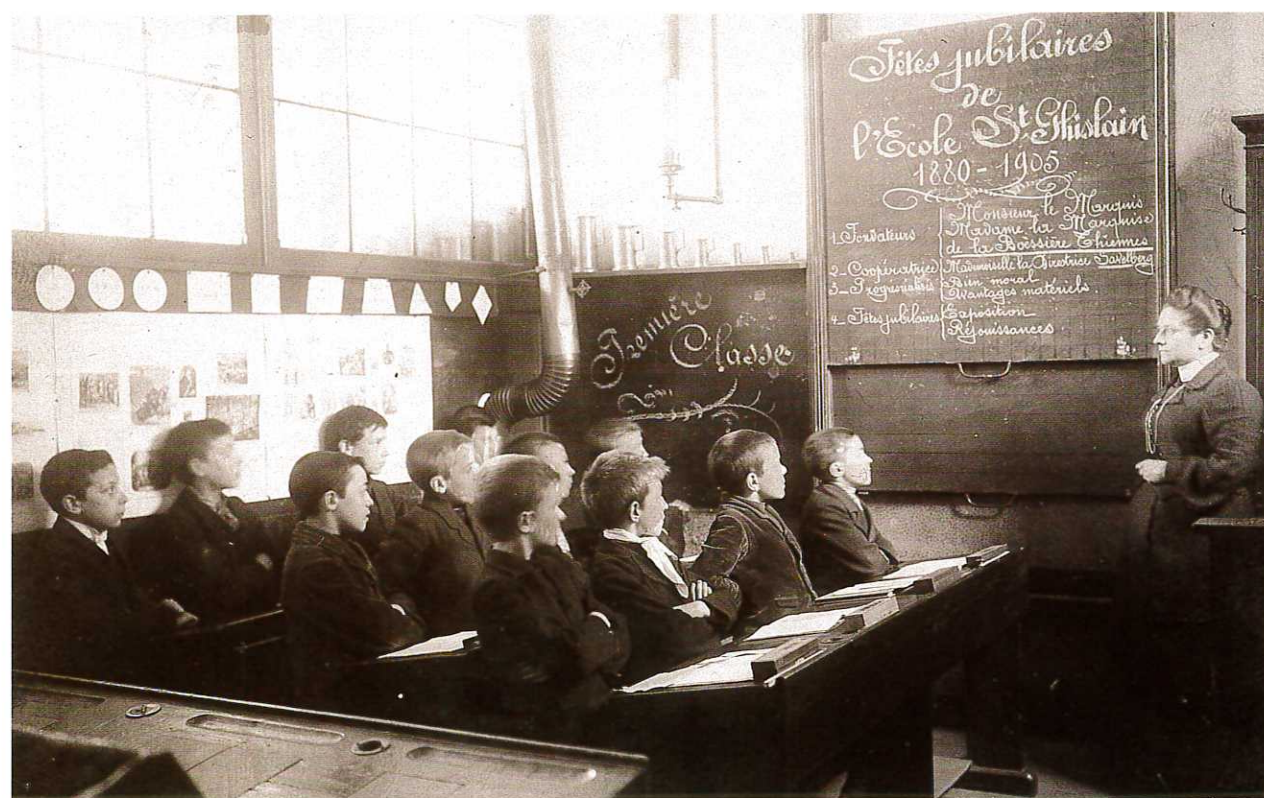 Fêtes jubilaires
de
l'Ecole St Ghislain
1880-1905
1_Fondateurs
Monsieur le Marquis
Madame la Marquise
de la Boëssière Thiennes
2_Coopératrice
Mademoiselle la Directrice Savelberg
3_
Bien moral
Avantages matériels.
4_Fêtes jubilaires
Exposition
Réjouissances
Première
Classe